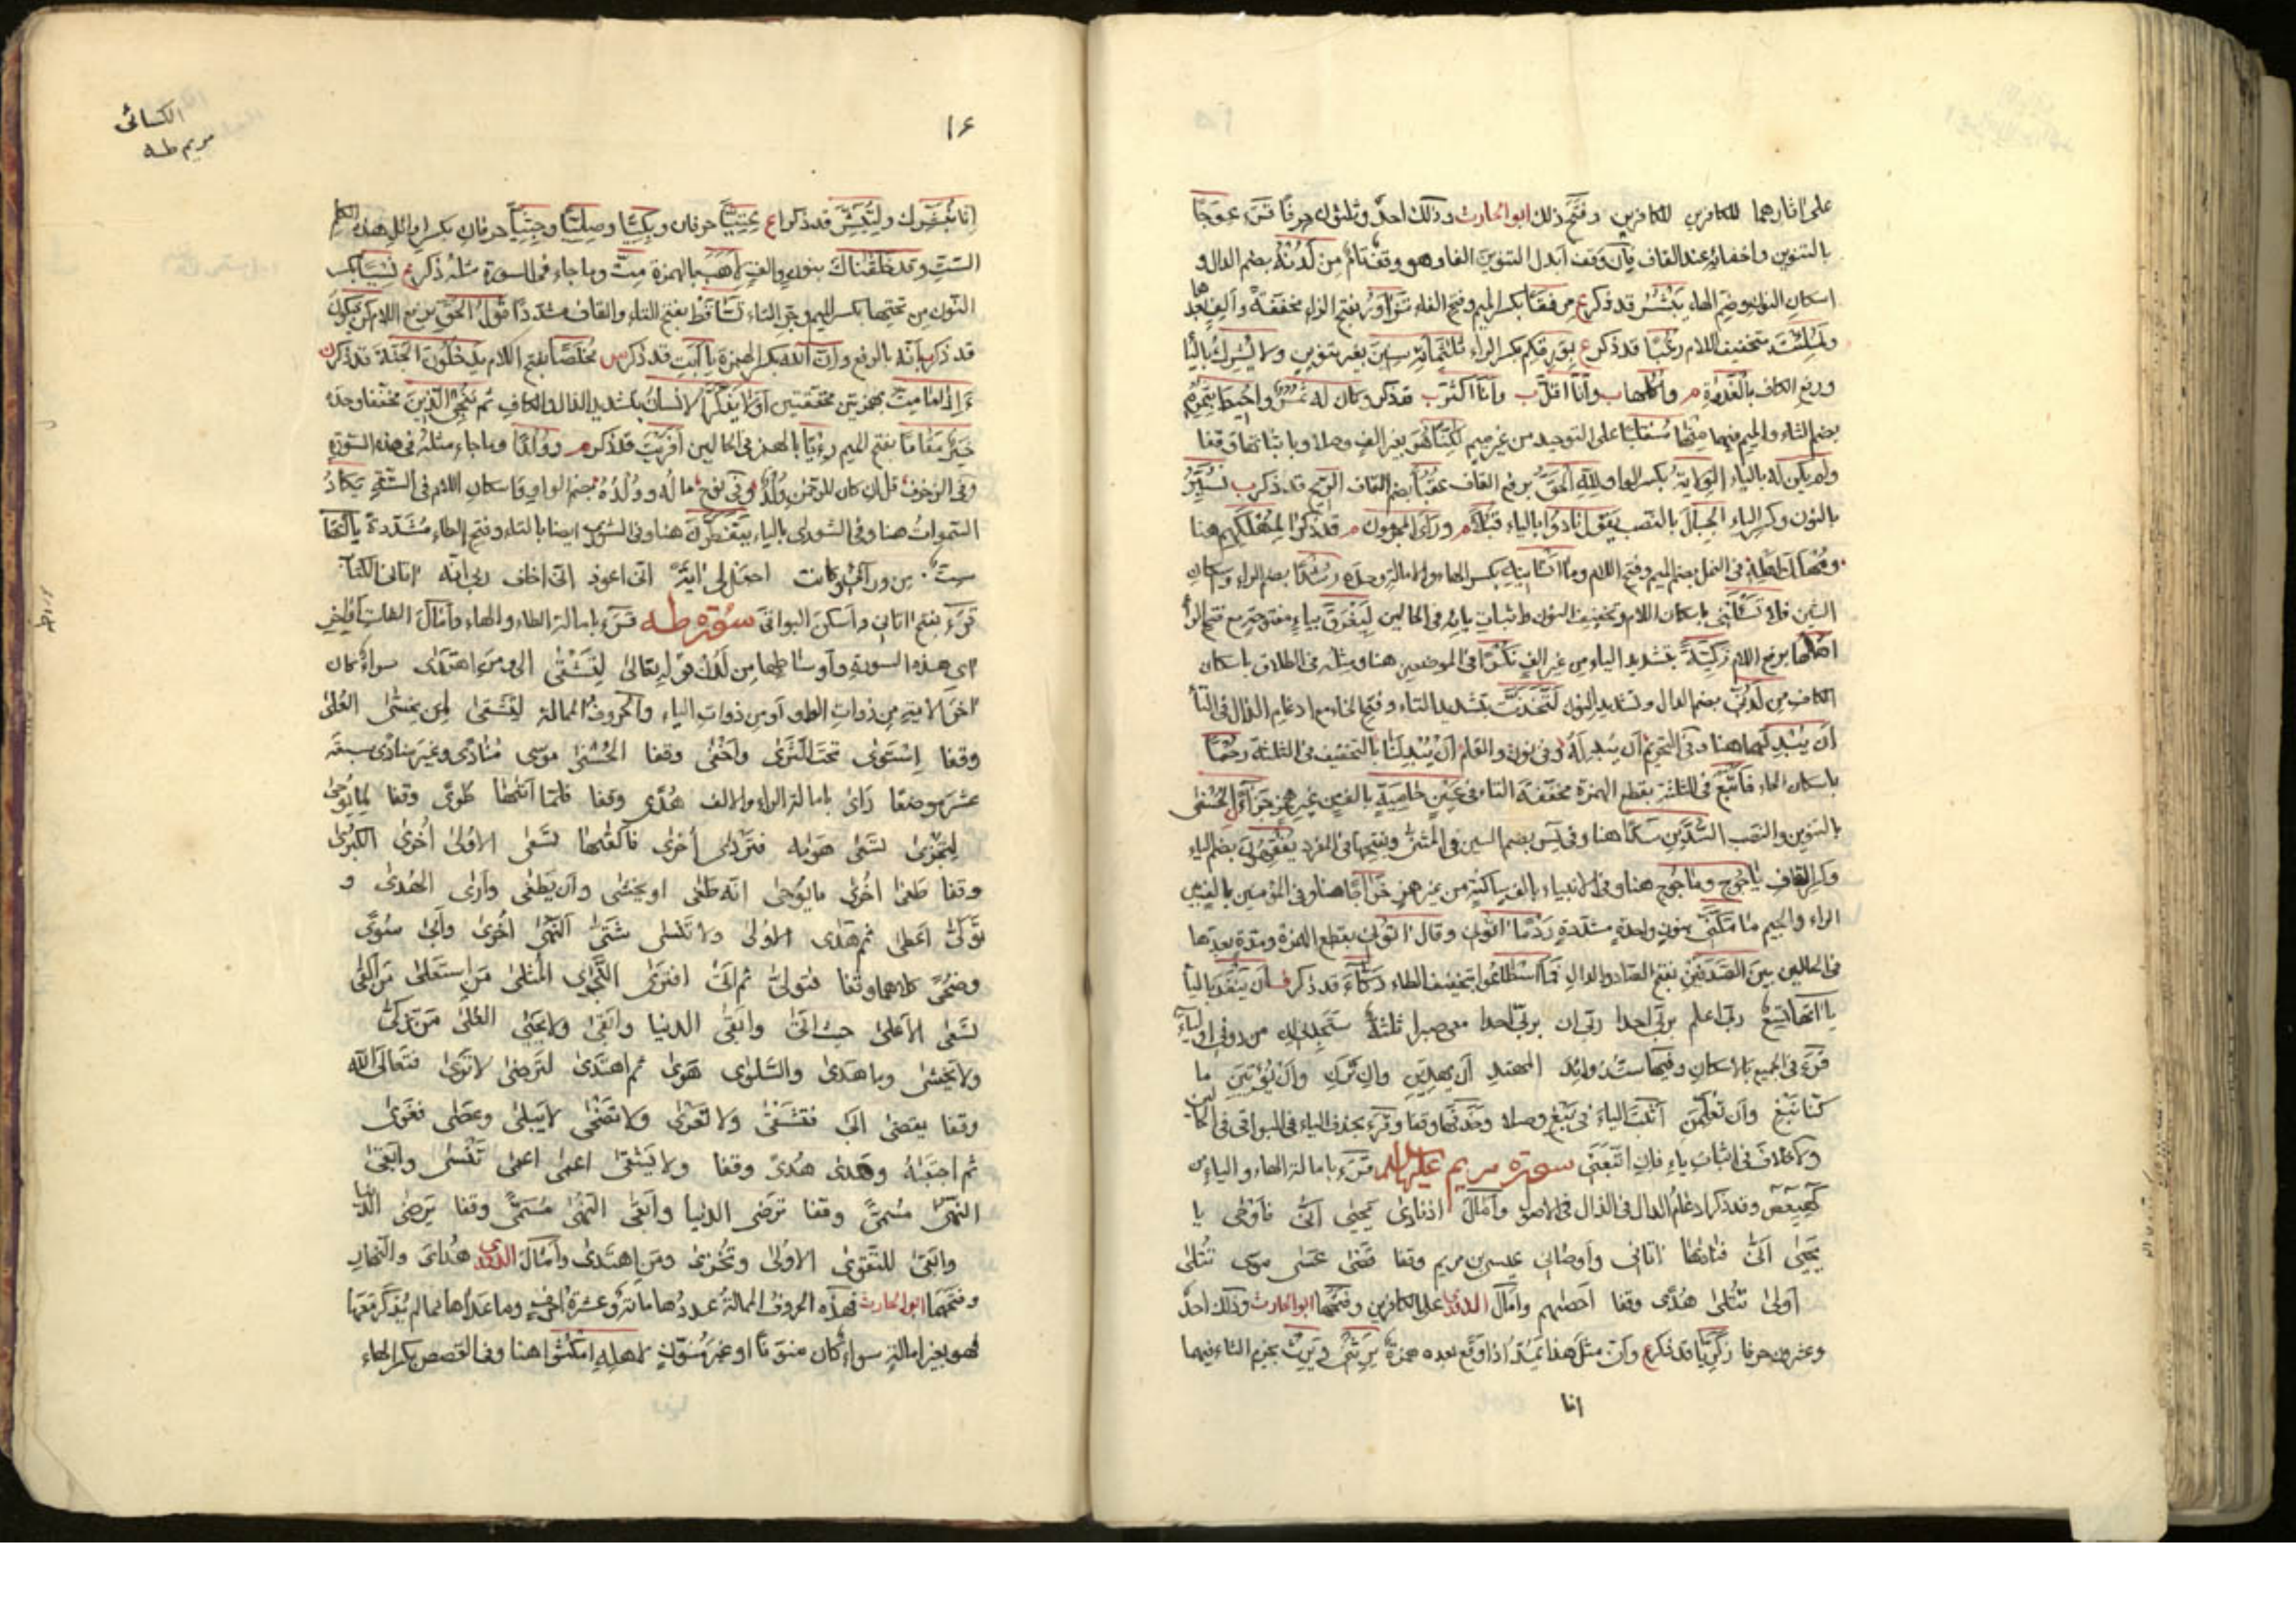 على اثارهما للكافرين للكافرين وفتح ذلك ابو الحارث وذلك احدٌ وثلثون حرفًا قرَء عِوَجًا
بالتنوين واخفائه عند القاف فإن وقف ابدل التنوين الفا وهو وقف تام من لَدُنْهُ بضم الدال و
اسكان النون وضم الهاء يَبْشُرُ قد ذكر ع مِرفقًا بكسر الميم وفتح الفاء تَزَاوَرُ بفتح الزاء مخففةً والف بعدها
ولَمُلِئْتَ بتخفيف اللام رُعُبًا قد ذكر ع بِوَرِقِكم بكسر الراء ثلثمائةِ سنين بغير تنوين ولا يُشرك بالياء
ورفع الكاف بالغَدٰوةِ م واُكُلها ب وأنا اقلّ ب وأنا اكثر ب قد ذكر وكان له ثُمُرٌ واحيط بِثُمُرِه
بضم الثاء والميم فيهما منها مُنقلبًا على التوحيد من غير ميم لكنّا هو بغير الف وصلا وباثباتها وقفا
ولم يكن له بالياء الوِلاية بكسر الواو للهِ الحقُّ برفع القاف عُقُبًا بضم القاف الريح قد ذكر ب نُسَيِّرُ
بالنون وكسر الياء الجبالَ بالنصب يقول نادوا بالياء قُبُلًا م ورأى المجرمون م قد ذكر لِمُهْلَكِهم هنا
ومُهْلَكَ اهله في النمل بضم الميم وفتح اللام وما انسانيهِ بكسر الهاء والامالة وحده رُشْدًا بضم الراء واسكان
الشين فلا تَسْئَلْني باسكان اللام وتخفيف النون واثبات يائه في الحالين لِيَغْرَقَ بياء مفتوحة مع فتح الراء
اهلُها برفع اللام زكيّةً بتشديد الياء من غير الف نُكْرًا في الموضعين هنا ومثله في الطلاق باسكان
الكاف من لَدُنّي بضم الدال وتشديد النون لَتَّخَذْتَ بتشديد التاء وفتح الخاء مع ادغام الذال في التاء
أن يُبْدِلَهما هنا وفي التحريم أن يُبْدِلَهُ وفي نون والقلم أن يُبْدِلَنا بالتخفيف في الثلثة رحْمًا
باسكان الحاء فأَتْبَعَ في الثلثة بقطع الهمزة مخففة التاء في عَيْنٍ حامِيَةٍ بالف من غير همز جزاءً الحسنى
بالتنوين والنصب السُّدَّين سَدًّا هنا وفي يس بضم السين في المثنى وبفتحها في المفرد يُفْقِهون بضم الياء
وكسر القاف ياجوج وماجوج هنا وفي الانبياء بالف ساكنة من غير همز خَرَاجًا هنا وفي المؤمنين بالف بين
الراء والجيم ما مكَّنّي بنون واحدة مشددة رَدْمًا اٰتوني وقال اٰتوني بقطع الهمزة ومدة بعدها
في الحالين بين الصَدَفَيْن بفتح الصاد والدال فما اسطاعوا بتخفيف الطاء دَكّاءَ قد ذكر ف أن يَنْفَدَ بالياء
ياآتها تسع ربّي اعلم بربّي احدا ربّي ان بربّي احدا معي صبرا ثلثة ستجدني ان من دوني اولياء
قرَء في الجميع بالاسكان وفيها ست زوائد المهتدِ أن يهدينِ وان ترنِ وأن يؤتينِ ما
كنا نبغِ وأن تعلمنِ أثبت الياء في نبغ وصلا وحذفها وقفا وقرَء بحذف الياء في البواقي في الحالين
ولا خلاف في اثبات ياء فان اتبعتني سورة مريم عليها السلام قرَء بامالة الهاء والياء من
كٓهيعٓصٓ وقد ذكر ادغام الدال في الذال في الاصول وأمال اذ نادى يحيى أنّى فأوحى يا
يحيى أنّى فناداها اٰتاني وأوصاني عيسى بن مريم وقفا قضى عسى موسى تُتلى
أولى تُتلى هُدًى وقفا احصٰيهم وأمال الدوري على الكافرين وفتحها ابو الحارث وذلك احدٌ
وعشرون حرفا زكريّا قد ذكر ع وأن مثل هذا يُمدّ اذا وقع بعده همزة يَرِثْني ويَرِثْ بجزم الثاء فيهما
انا
١٦
الكسائى
مريم طه
إنّا نُبَشِّرك ولِتُبَشِّرَ قد ذكر ع عِتِيًّا حرفان وبِكِيًّا وصِلِيًّا وجِثِيًّا حرفان بكسر اوائل هذه الكلم
الست وقد خلقْناكَ بنون والف لِأَهَبَ بالهمزة مِتُّ وما جاء في السورة مثله ذكر نِسْيًا بكسر
النون مِن تحتِها بكسر الميم وجرّ التاء تَسَّاقَط بفتح التاء والقاف مشددًا قولُ الحقّ برفع اللام كن فيكون
قد ذكر ب أنه بالرفع وإنّ الله بكسر الهمزة يا أبتِ قد ذكر س مُخلَصًا بفتح اللام يَدخلون الجنة قد ذكر ن
ءَاِذا ما مِتُّ بهمزتين مخففتين أولا يذّكّر الانسان بتشديد الذال والكاف ثم نُنْجِي الذين مخففا وحده
خيرٌ مَقامًا بفتح الميم ورِءْيًا بالهمز في الحالين أفريت قد ذكر م ووُلْدًا وما جاء مثله في هذه السورة
وفي الزخرف قل ان كان للرحمٰن وُلْدٌ وفي نوح ماله ووُلْدُهُ بضم الواو واسكان اللام في الستة يكادُ
السموات هنا وفي الشورى بالياء يتفطَّرن هنا وفي الشورى ايضا بالتاء وفتح الطاء مشددة ياآتها
ست من ورآئي وكانت اجعل لي اٰيةً انّي اعوذ انّي اخاف ربي انه اٰتاني الكتاب
قرَء بفتح اٰتاني وأسكن البواقي سورة طه قرَء بامالة الطاء والهاء وأمال الفات أواخر
آي هذه السورة وأوساطها من لدن قوله تعالى لِتَشْقٰى الى ومن اهتدى سواء كان
اخر الآية من ذوات الواو أو من ذوات الياء والحروف الممالة لِتَشقى لمن يخشى العُلى
وقفا اِستوى تحت الثرى وأخفى وقفا الحُسنى موسى مُنادى وغير منادى سبعة
عشر موضعًا رَاٰى بامالة الراء والالف هُدًى وقفا فلمّا أتٰها طُوًى وقفا لما يوحى
لِتجزى تسعى هَوٰيه فتَردى أخرى فألقٰيها تسعى الاولى أُخرى الكبرى
وقفا طغى اخرى ما يوحى انّه طغى او يخشى وأن يطغى وأرى الهُدى و
تولّى أعطى ثم هدى الاولى ولا ينسى شتّى النُهى اخرى وأبى سُوًى
وضُحًى كلاهما وقفا فتولّى ثم أتى افترى النجوى المُثلى من استعلى من ألقى
تسعى الأعلى حيث أتى وأبقى الدنيا وأبقى ولا يحيى العُلى من تزكّى
ولا تخشى وما هدى والسلوى هَوى ثم اهتدى لِترضى لا ترى فتعالى الله
وقفا يُقضى أبى فتشقى ولا تَعْرى ولا تضحى لا يبلى وعصى فغوى
ثم اجتبٰه وهَدى هُدًى وقفا ولا يشقى اعمى اعمى تُنسى وأبقى
النُهى مُسمّى وقفا ترضى الدنيا وأبقى النُهى مُسمّى وقفا ترضى الدنيا
وابقى للتقوى الاولى ونُخزى ومن اهتدى وأمال الدوري هُدايَ والنهار
وفتحها ابو الحارث فهذه الحروف الممالة عددها مائة وعشرة احرف وما عداها مما لم يُذكر معها
فهو بغير امالة سواء كان منوّنًا او غير منوّن لاهله امكثوا هنا وفي القصص بكسر الهاء